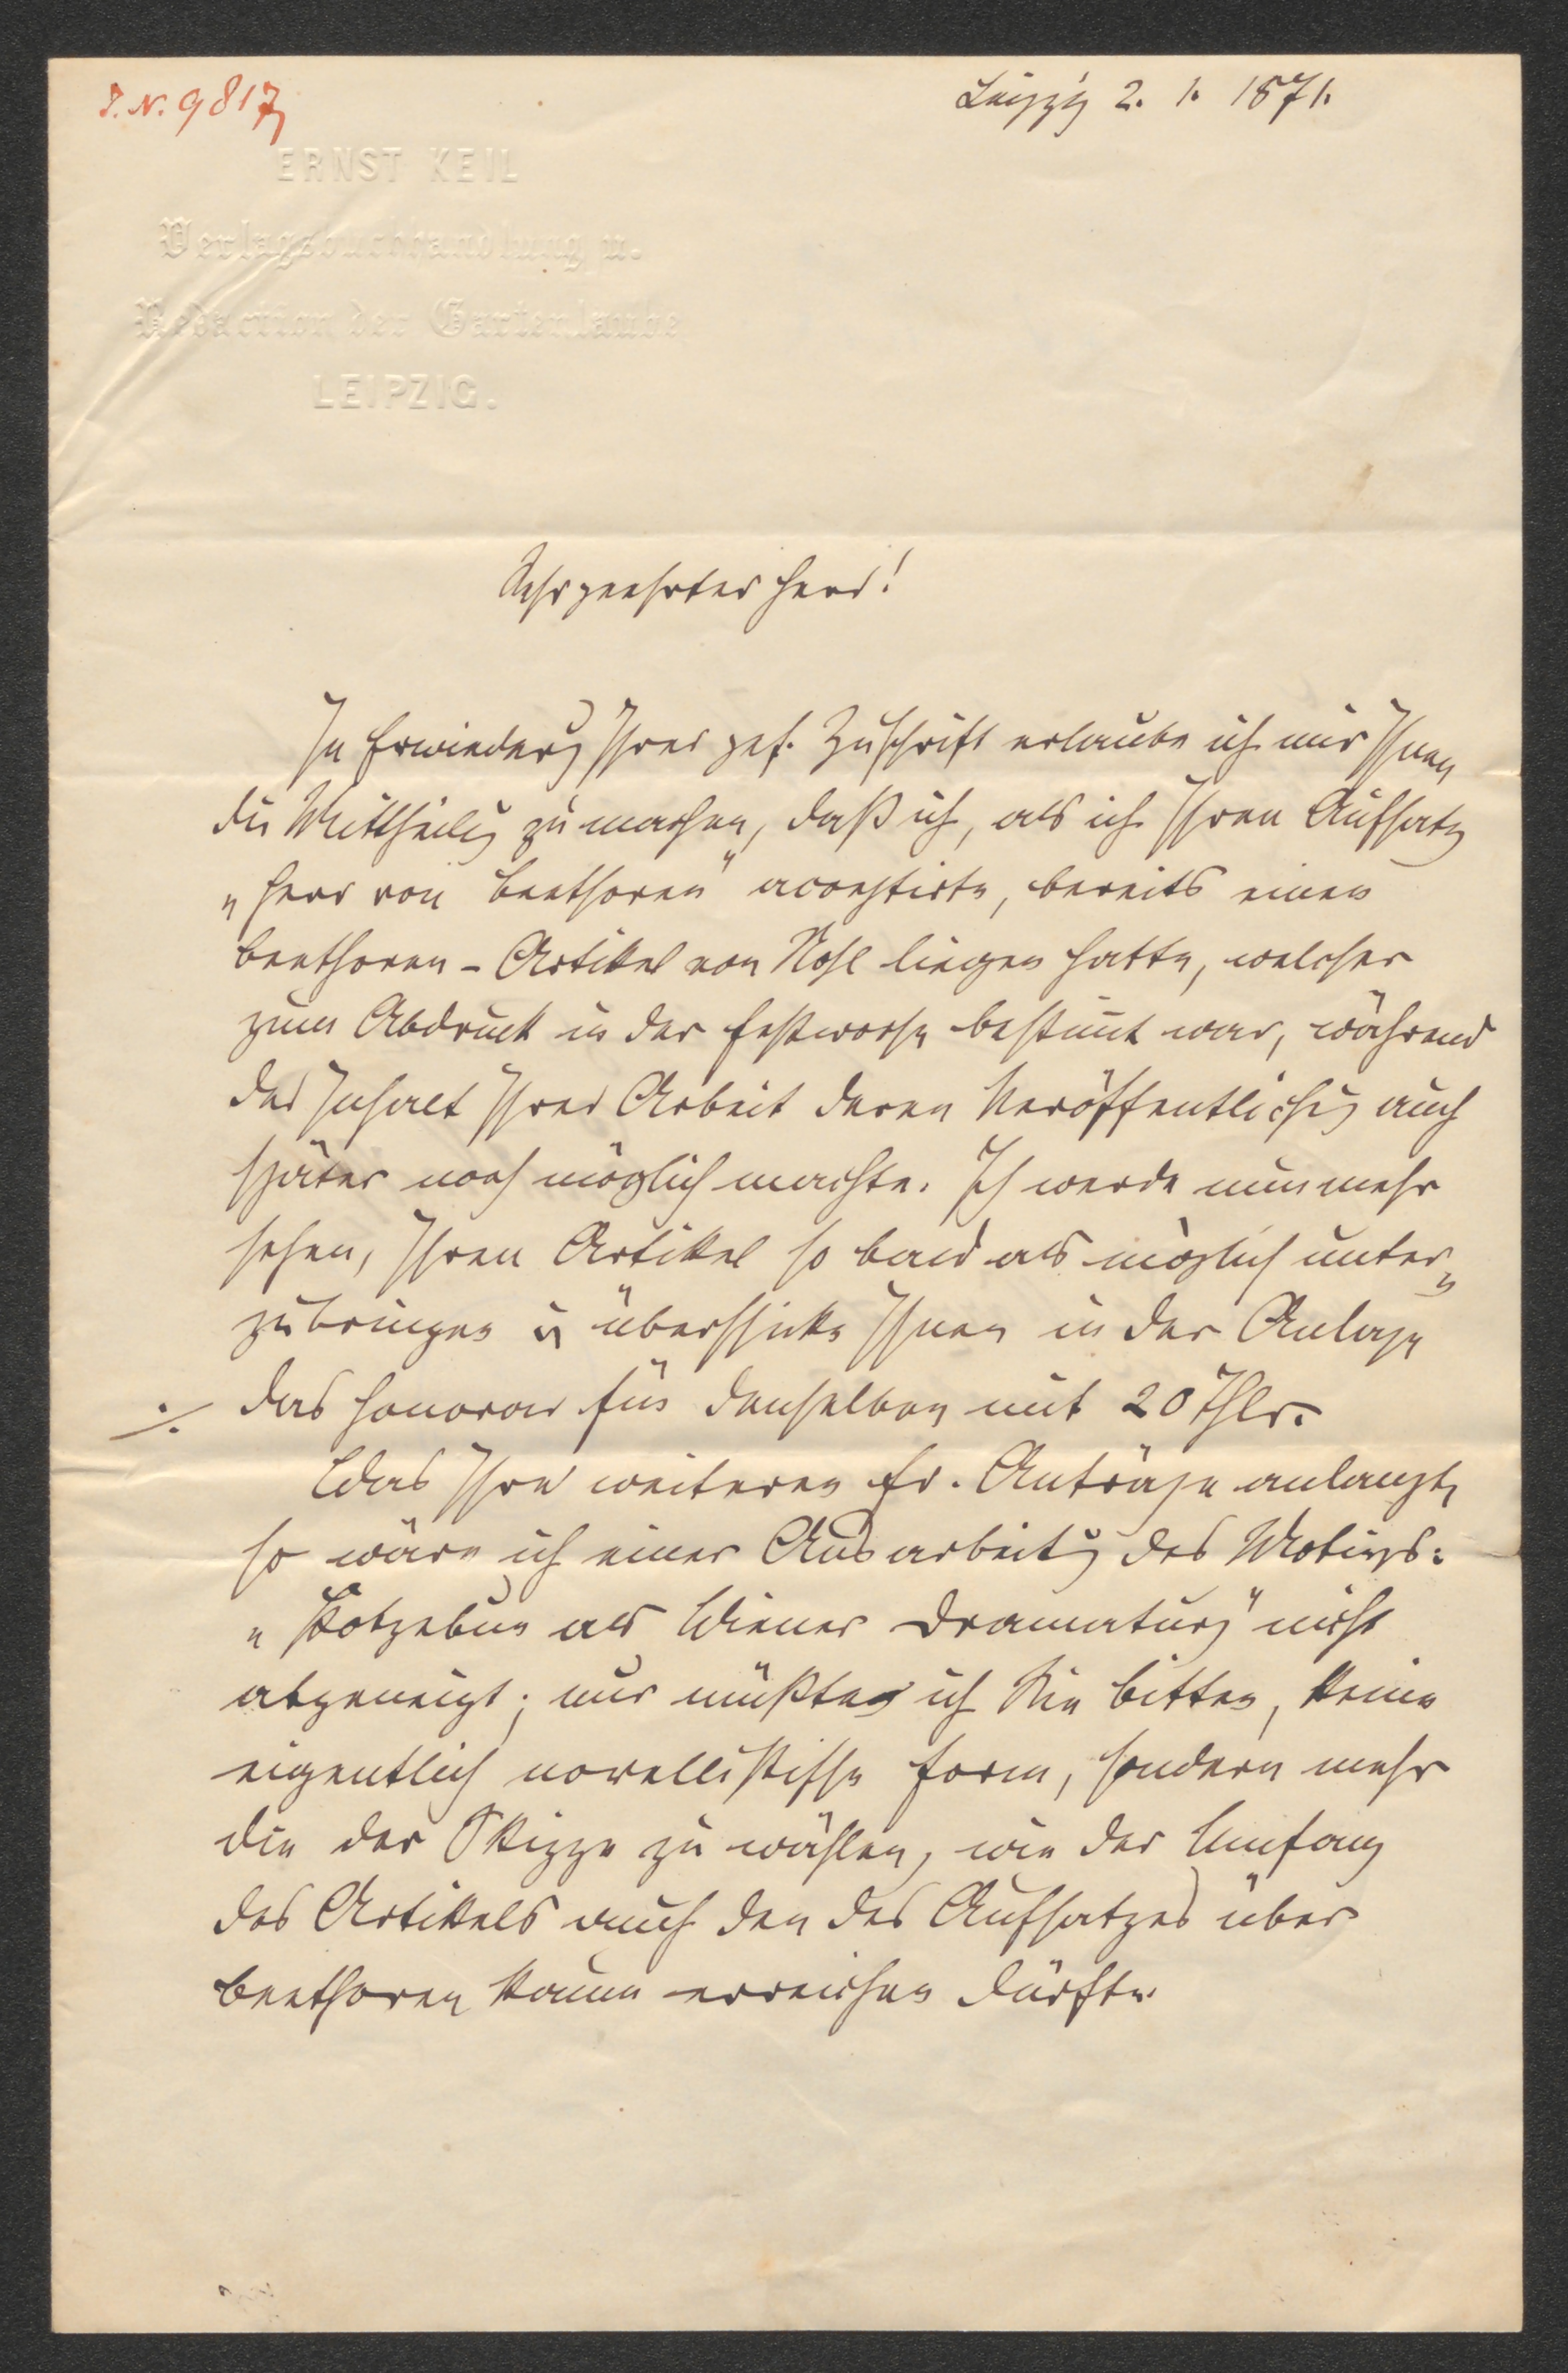 I. N. 9817
Leipzig 2. 1. 1871.
ERNST KEIL
Verlagsbuchhandlung u.
Redaction der Gartenlaube
LEIPZIG.
Sehr geehrter Herr!
In Erwiederung Ihrer gef. Zuschrift erlaube ich mir Ihnen
die Mittheilung zu machen, daß ich, als ich Ihren Aufsatz
„Herr von Beethoven“ acceptirte, bereits einen
Beethoven-Artikel von Nohl liegen hatte, welcher
zum Abdruck in der Festwoche bestimmt war, während
der Inhalt Ihrer Arbeit deren Veröffentlichung auch
später noch möglich machte. Ich werde nunmehr
sehen, Ihren Artikel so bald als möglich unter-
zubringen u überschicke Ihnen in der Anlage
./. das Honorar für denselben mit 20 Thlr.
Was Ihre weiteren fr. Anträge anlangt,
so wäre ich einer Ausarbeitung des Motivs:
„Kotzebue als Wiener Dramaturg“ nicht
abgeneigt; nur müßte ich Sie bitten, keine
eigentlich novellistische Form, sondern mehr
die der Skizze zu wählen, wie der Umfang
des Artikels auch den des Aufsatzes über
Beethoven kaum erreichen dürfte.